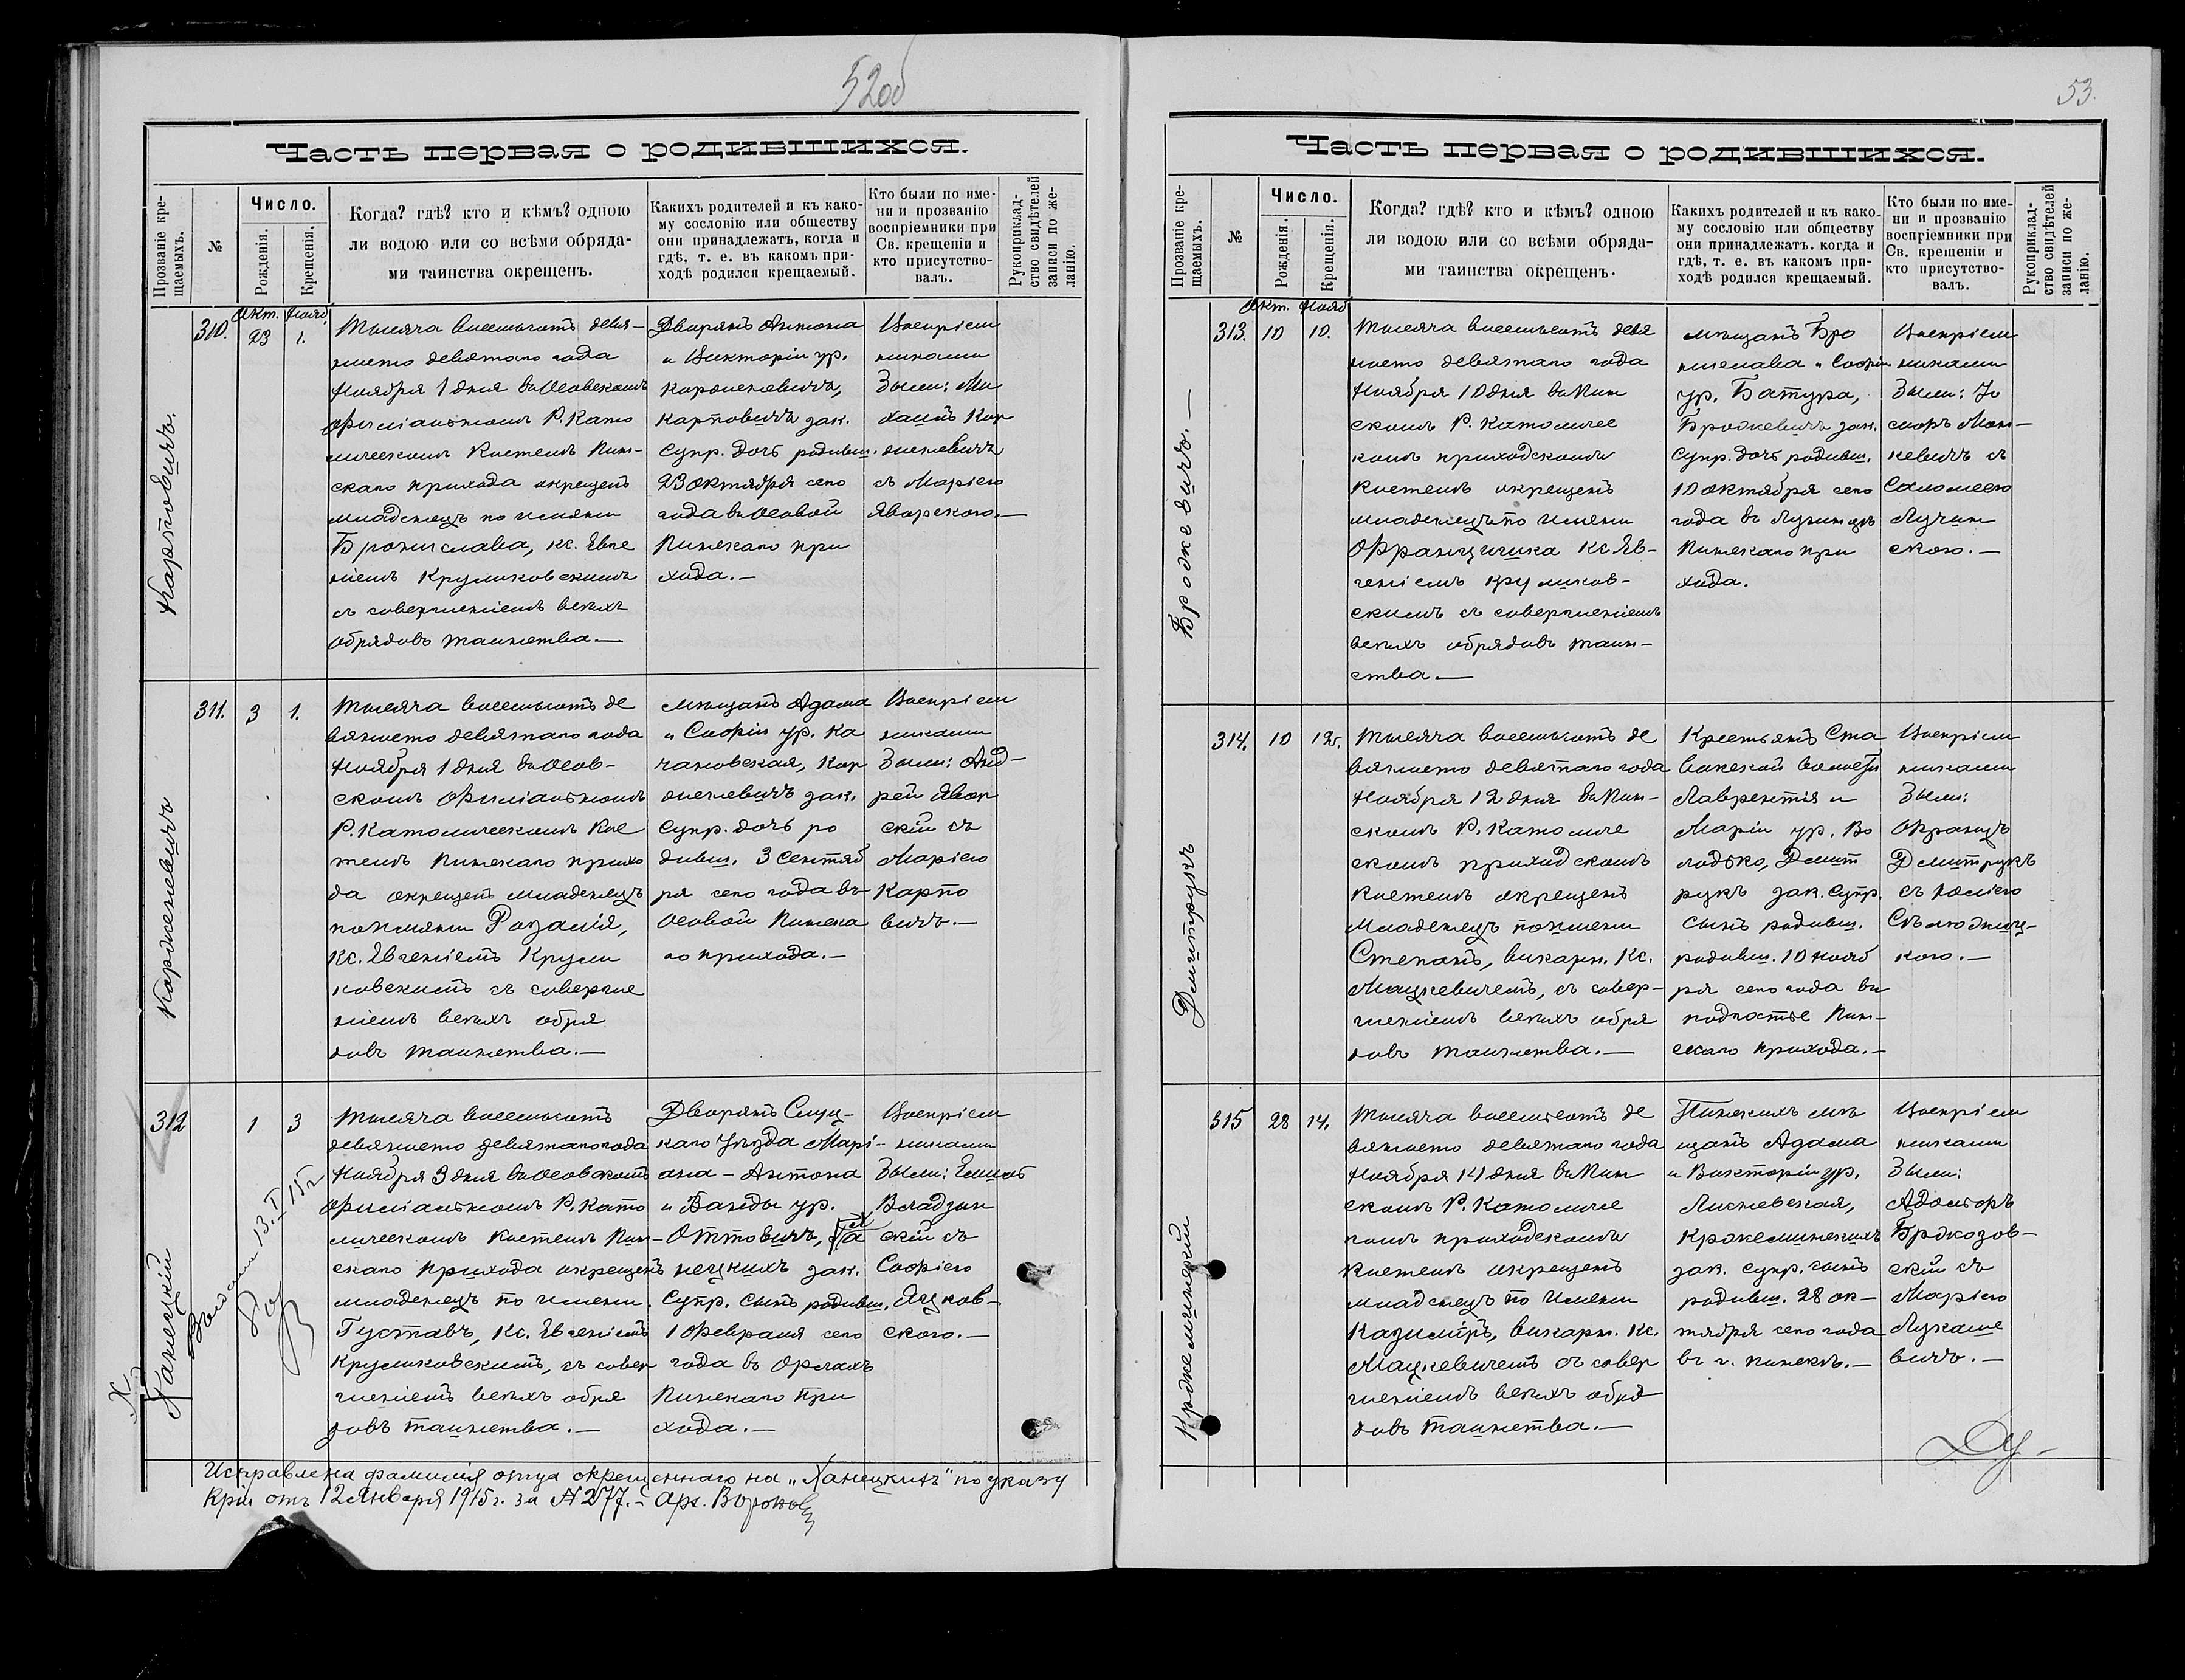 52об
Часть первая о родившихся.
Прозваніе кре-
щаемыхъ.
№
Число.
Рожденія.
Крещенія.
Когда? гдѣ? кто и кѣмъ? одною
ли водою или со всѣми обряда-
ми таинства окрещенъ.
Какихъ родителей и къ како-
му сословію или обществу
они принадлежатъ, когда и
гдѣ, т. е. въ какомъ при-
ходѣ родился крещаемый.
Кто были по име-
ни и прозванію
воспріемники при
Св. крещеніи и
кто присутство-
валъ.
Рукоприклад-
ство свидѣтелей
записи по же-
ланію.
Карповичъ.
310.
Окт.
23
Нояб.
1.
Тысяча восемьсотъ девя-
носто девятаго года
Ноября 1 дня въ Осовскомъ
Филіальномъ Р. Като
лическомъ Костелѣ Пин-
скаго прихода окрещенъ
младенецъ по имени
Бронислава, кс. Евге
ніемъ Крумиковскимъ
съ совершеніемъ всѣхъ
обрядовъ таинства.—
Дворянъ Антона
и Викторіи ур.
Корженевичъ,
Карповичъ зак.
Супр. дочь родивш.
23 октября сего
года въ Осовой
Пинскаго при
хода.—
Воспріем
никами
были: Ми
хаилъ Кор
женевичъ
съ Маріею
Яворскою.—
Корженевичъ
311.
3
1.
Тысяча восемьсотъ де
вяносто девятаго года
Ноября 1 дня въ Осов-
скомъ Филіальномъ
Р. Католическомъ Кос
телѣ Пинскаго прихо
да окрещенъ младенецъ
по имени Розалія,
Кс. Евгеніемъ Круми
ковскимъ съ соверше
ніемъ всѣхъ обря
довъ таинства.—
мѣщанъ Адама
и Софіи ур. Ка
чановская, Кор
женевичъ зак.
Супр. дочь ро
дивш. 3 Сентяб
ря сего года въ
Осовой Пинска
го прихода.—
Воспріем
никами
были: Анд-
рей Явор
скій съ
Маріею
Карпо
вичъ.—
Ханецкій
312
1
3
13. I 15 г
Тысяча восемьсотъ
девяносто девятаго года
Ноября 3 дня въ Осовскомъ
Филіальномъ Р. Като
лическомъ Костелѣ Пин-
скаго прихода окрещенъ
младенецъ по имени
Густавъ, Кс. Евгеніемъ
Крумиковскимъ, съ совер
шеніемъ всѣхъ обря
довъ таинства.—
Дворянъ Слуц-
каго Уѣзда Марі-
ана-Антона
и Ванды ур.
Оттовичъ, Ха
нецкихъ зак.
Супр. сынъ родивш.
1 Февраля сего
года въ Орлахъ
Пинскаго при
хода.—
Воспріем
никами
были: Емилъ
Владзин
скій съ
Софіею
Яцков-
скою.—
Исправлена фамилія отца окрещеннаго на „Ханецкихъ" по указу
Кріи отъ 12 Января 1915 г. за №277.—
53.
Часть первая о родившихся.
Прозваніе кре-
щаемыхъ.
№
Число.
Рожденія.
Крещенія.
Когда? гдѣ? кто и кѣмъ? одною
ли водою или со всѣми обряда-
ми таинства окрещенъ.
Какихъ родителей и къ како-
му сословію или обществу
они принадлежатъ. когда и
гдѣ, т. е. въ какомъ при-
ходѣ родился крещаемый.
Кто были по име-
ни и прозванію
воспріемники при
Св. крещеніи и
кто присутство-
валъ.
Рукоприклад-
ство свидѣтелей
записи по же-
ланію.
Бродкевичъ.—
313.
Окт.
10
Нояб
10.
Тысяча восемьсотъ девя
носто девятаго года
Ноября 10 дня въ Пин
скомъ Р. Католичес
комъ приходскомъ
Костелѣ окрещенъ
младенецъ по имени
Францишка Кс. Ев-
геніемъ Крумиков-
скимъ съ совершеніемъ
всѣхъ обрядовъ таин-
ства.—
мѣщанъ Бро
нислава и Софіи
ур. Батура,
Бродкевичъ зак.
Супр. дочь родивш.
10 октября сего
года въ Лунинцѣ
Пинскаго при
хода.
Воспріем
никами
были:
кевичъ съ
Саломеею
Лучин
скою.—
Дмитрукъ
314.
10
12.
Тысяча восемьсотъ де
вяносто девятаго года
Ноября 12 дня въ Пин-
скомъ Р. Католиче
скомъ приходскомъ
Костелѣ окрещенъ
младенецъ по имени
Степанъ, викарн. Кс.
Мацкевичемъ, съ совер-
шеніемъ всѣхъ обря
довъ таинства.—
Крестьянъ Ста
викской волости
Лаврентія и
Маріи ур. Во
лодько, Дмит
рукъ зак. Супр.
сынъ родивш.
родивш. 10 нояб
ря сего года въ
Пин-
скаго прихода.—
Воспріем
никами
были:
Францъ
Дмитрукъ
съ Юліею
кою.—
Кржеминскій
315
28
14.
Тысяча восемьсотъ де
вяносто девятаго года
Ноября 14 дня въ Пин
скомъ Р. Католичес
комъ приходскомъ
Костелѣ окрещенъ
младенецъ по имени
Казиміръ, викарн. Кс.
Мацкевичемъ съ совер
шеніемъ всѣхъ обря
довъ таинства.—
Пинскихъ мѣ
щанъ Адама
и Викторіи ур.
Лисневская,
Кржеминскихъ
зак. супр. сынъ
родивш. 28 ок-
тября сего года
въ г. Пинскѣ.—
Воспріем
никами
были:
Адольфъ
Бржозов-
скій съ
Маріею
Лукаше
вичъ.—